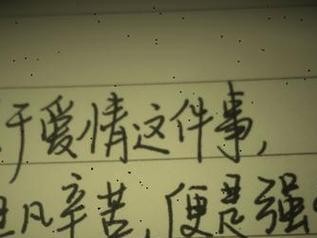 于爱情这件事，
思凡辛苦，便是强